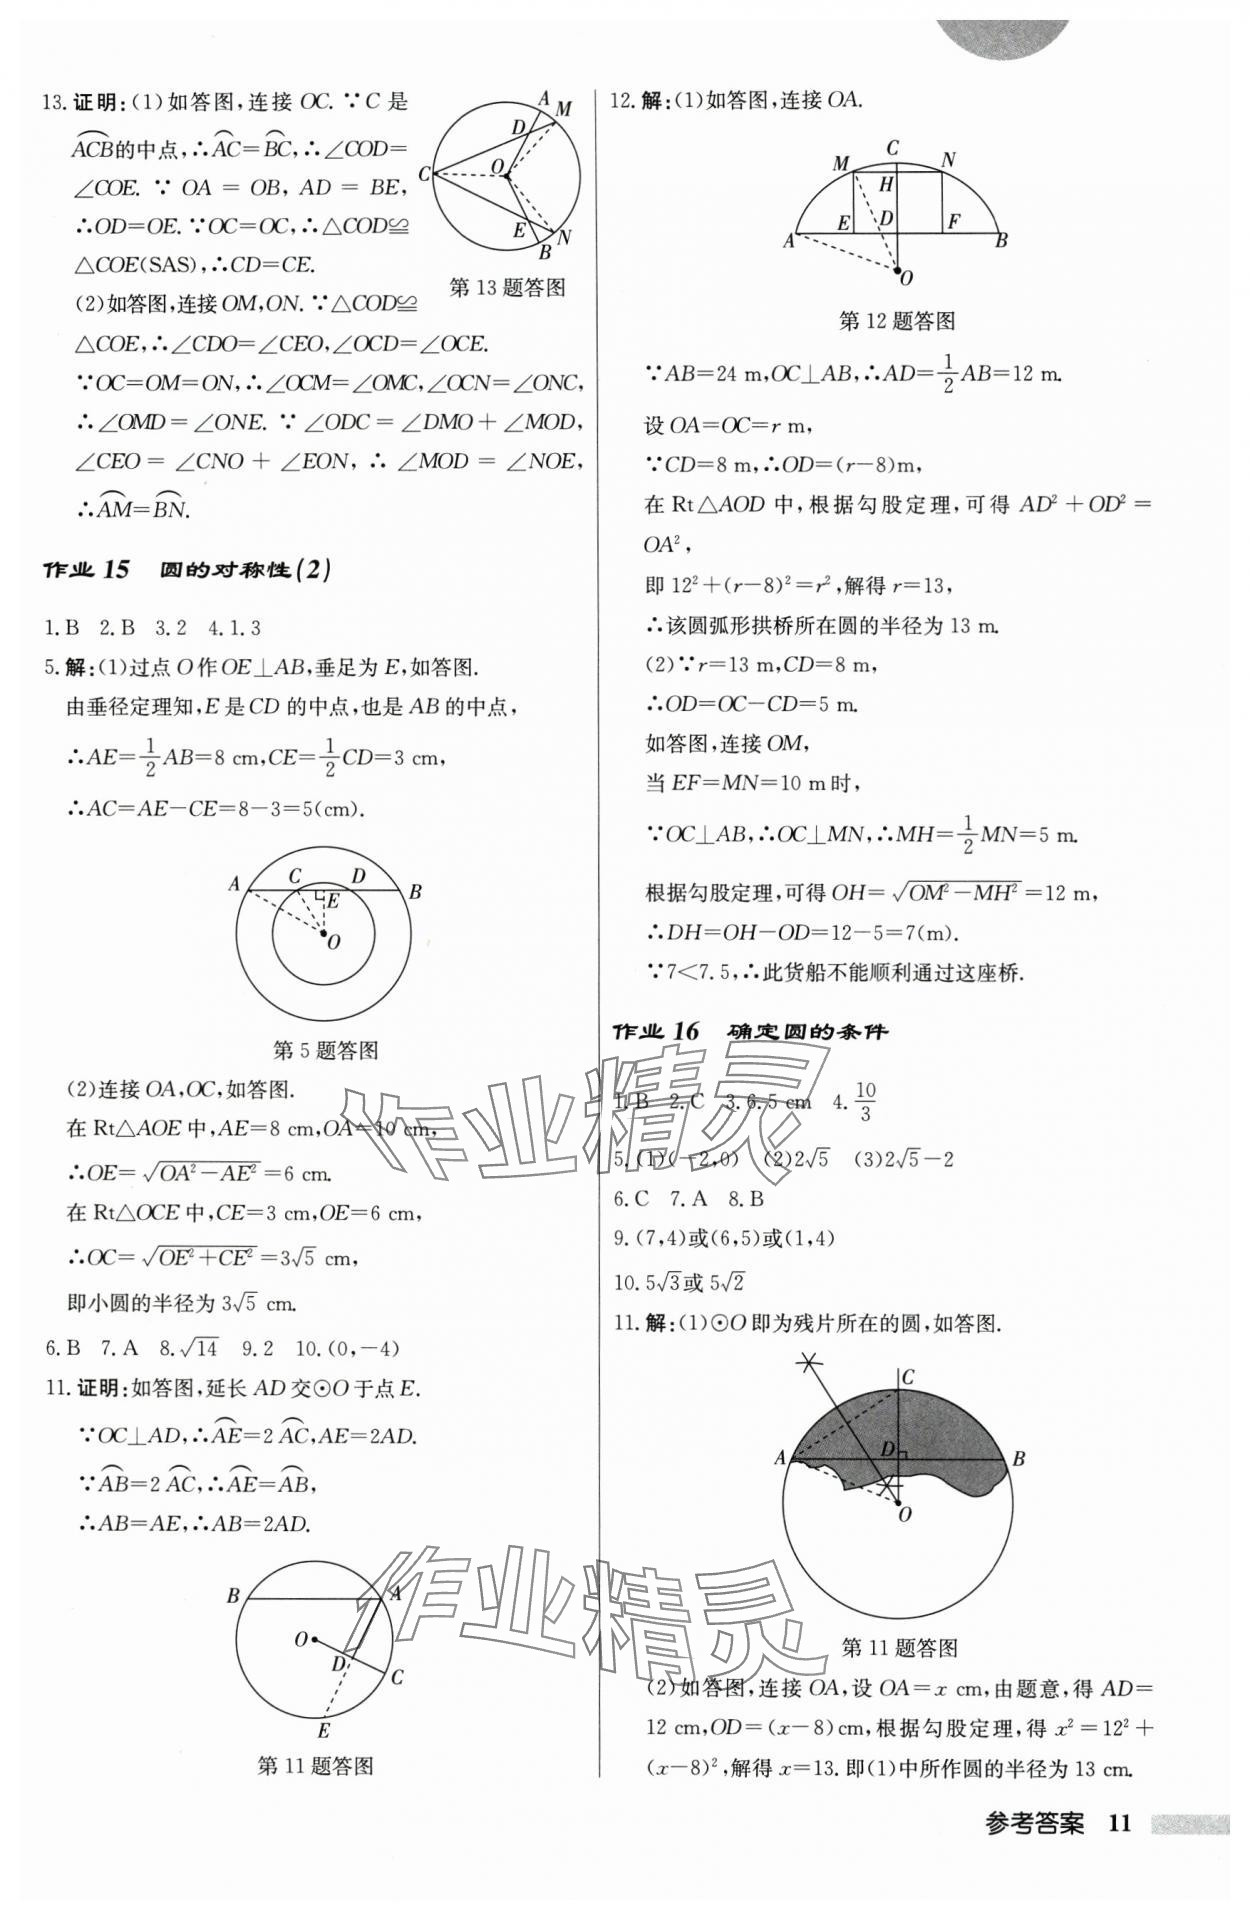 13.证明:(1)如答图,连接 OC.∵C 是
ACB的中点,∴AC=BC,∴∠COD=
∠COE.∵ OA = OB, AD = BE,
∴OD=OE.∵OC=OC,∴△COD≌
△COE(SAS),∴CD=CE.
(2)如答图,连接OM,ON.∵△COD≌
△COE,∴∠CDO=∠CEO,∠OCD=∠OCE.
∵OC=OM=ON,∴∠OCM=∠OMC,∠OCN=∠ONC,
∴∠OMD=∠ONE.∵∠ODC=∠DMO+∠MOD,
∠CEO=∠CNO+∠EON,∴∠MOD=∠NOE,
∴AM=BN.
A
M
D
C
O
E
N
B
第 13 题答图
作业 15 圆的对称性(2)
1.B 2.B 3.2 4.1.3
5.解:(1)过点 O 作 OE⊥AB,垂足为 E,如答图.
由垂径定理知,E 是 CD 的中点,也是 AB 的中点,
∴AE=1/2AB=8 cm,CE=1/2CD=3 cm,
∴AC=AE-CE=8-3=5(cm).
A C D B
E
O
第 5 题答图
(2)连接 OA,OC,如答图.
在 Rt△AOE 中,AE=8 cm,OA=10 cm,
∴OE=√(OA²-AE²)=6 cm.
在 Rt△OCE 中,CE=3 cm,OE=6 cm,
∴OC=√(OE²+CE²)=3√5 cm,
即小圆的半径为 3√5 cm.
6.B 7.A 8.√14 9.2 10.(0,-4)
11.证明:如答图,延长 AD 交⊙O 于点 E.
∵OC⊥AD,∴AE=2 AC,AE=2AD.
∵AB=2 AC,∴AE=AB,
∴AB=AE,∴AB=2AD.
B A
O
D
C
E
第 11 题答图
12.解:(1)如答图,连接 OA.
C
M N
H
E D F
A B
O
第 12 题答图
∵AB=24 m,OC⊥AB,∴AD=1/2AB=12 m.
设 OA=OC=r m,
∵CD=8 m,∴OD=(r-8)m,
在 Rt△AOD 中,根据勾股定理,可得 AD²+OD²=
OA²,
即 12²+(r-8)²=r²,解得 r=13,
∴该圆弧形拱桥所在圆的半径为 13 m.
(2)∵r=13 m,CD=8 m,
∴OD=OC-CD=5 m.
如答图,连接 OM,
当 EF=MN=10 m 时,
∵OC⊥AB,∴OC⊥MN,∴MH=1/2MN=5 m.
根据勾股定理,可得 OH=√(OM²-MH²)=12 m,
∴DH=OH-OD=12-5=7(m).
∵7<7.5,∴此货船不能顺利通过这座桥.
作业 16 确定圆的条件
1.B 2.C 3.6.5 cm 4.10/3
5.(1)(-2,0) (2)2√5 (3)2√5-2
6.C 7.A 8.B
9.(7,4)或(6,5)或(1,4)
10.5√3或 5√2
11.解:(1)⊙O 即为残片所在的圆,如答图.
C
A D B
O
第 11 题答图
(2)如答图,连接 OA,设 OA=x cm,由题意,得 AD=
12 cm,OD=(x-8)cm,根据勾股定理,得 x²=12²+
(x-8)²,解得 x=13.即(1)中所作圆的半径为 13 cm.
作业精灵
作业精灵
参考答案 11